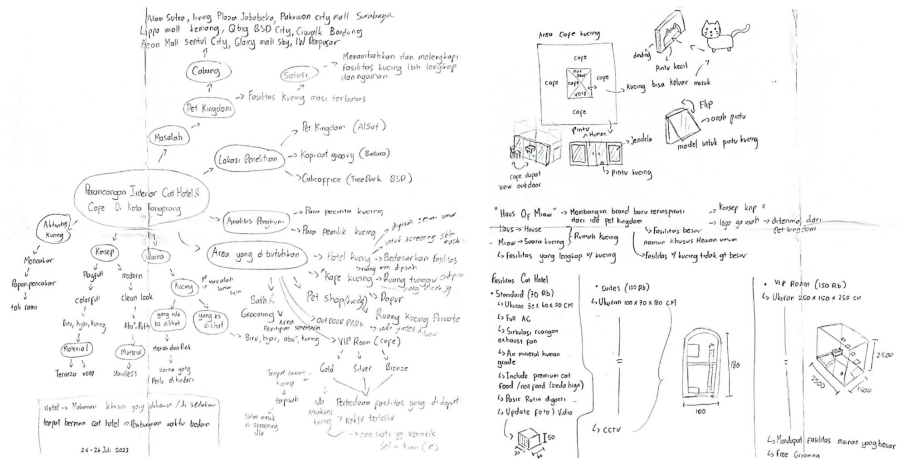 Alam Sutra, living Plaza Jababeka, Pakuwon city mall Surabaya
Lippo mall kemang, Qbig BSD City, Ciwalk Bandung
Aeon Mall sentul City, Galaxy mall Sby, LW Denpasar
Cabang
Pet Kingdom
Masalah
Solusi
Menambahkan dan melengkapi
fasilitas kucing lebih lengkap
dan nyaman
Fasilitas kucing masi terbatas
Lokasi Penelitian
Pet Kingdom (AlSut)
Kopicat groovy (Bintaro)
Catcoffice (TreePark BSD)
Perancangan Interior Cat Hotel &
Cafe Di Kota Tangerang
Analisis Pengguna
Para pecinta kucing
Para pemilik kucing
Area yang dibutuhkan
Hotel kucing
Bedasarkan fasilitas
Kafe kucing
Ruang tunggu
Dapur
Pet shop (kucing)
Ruang kucing Private
Bath &
Grooming
OUTDOOR PARK
VIP Room (cafe)
Gold
Silver
Bronze
Perbedaan fasilitas yang didapat
waktu tertentu
Aktivitas
Kucing
Mencakar
Papan pencakar
tali rami
Konsep
Playfull
colorfull
Biru, hijau, kuning
Material
Terrazo
modern
clean look
Abu", Putih
Material
stainless
Warna
Kucing
yang tidak
bs dilihat
Merah dan Pink
Warna yang
Perlu dihindari
yang bs
dilihat
Biru, hijau, abu", kuning
Tempat
kucing
terpisah
untuk
di screening
dlu
Hotel → Makanan khusus yang dibawa / di sediakan
tempat bermain cat hotel → Pembagian waktu bedain
24 - 26 Juli 2023
Area Cafe kucing
cafe
cafe
cafe
cafe
cafe
dinding
Pintu kecil
Kucing bisa keluar masuk
Flip
arah pintu
model untuk pintu kucing
Pintu
Human
Jendela
Pintu kucing
cafe dapat
view outdoor
"Haus Of Miaw" → Membangun brand baru terinspirasi
dari ide pet kingdom
Haus → House
Miaw → Suara kucing
Rumah kucing
Fasilitas yang lengkap u/ kucing
Fasilitas besar
namun khusus Hewan umum
fasilitas u/ kucing tidak gt besar
Konsep
logo
diterima dari
pet kingdom
Fasilitas Cat Hotel
• Standard (70 Rb)
Ukuran 30 x 60 x 50 CM
Full AC
Sirkulasi ruangan
exhaust fan
Air mineral human
grade
Include premium cat
food / non food (beda harga)
Pasir Rutin diganti
Update foto / Vidio
50
• Suites (100 Rb)
Ukuran 100 x 70 x 180 CM
=
CCTV
180
100
• VIP Room (150 Rb)
Ukuran 250 x 150 x 250 CM
=
2500
2500
1500
Mendapat fasilitas mainan yang besar
free Grooming